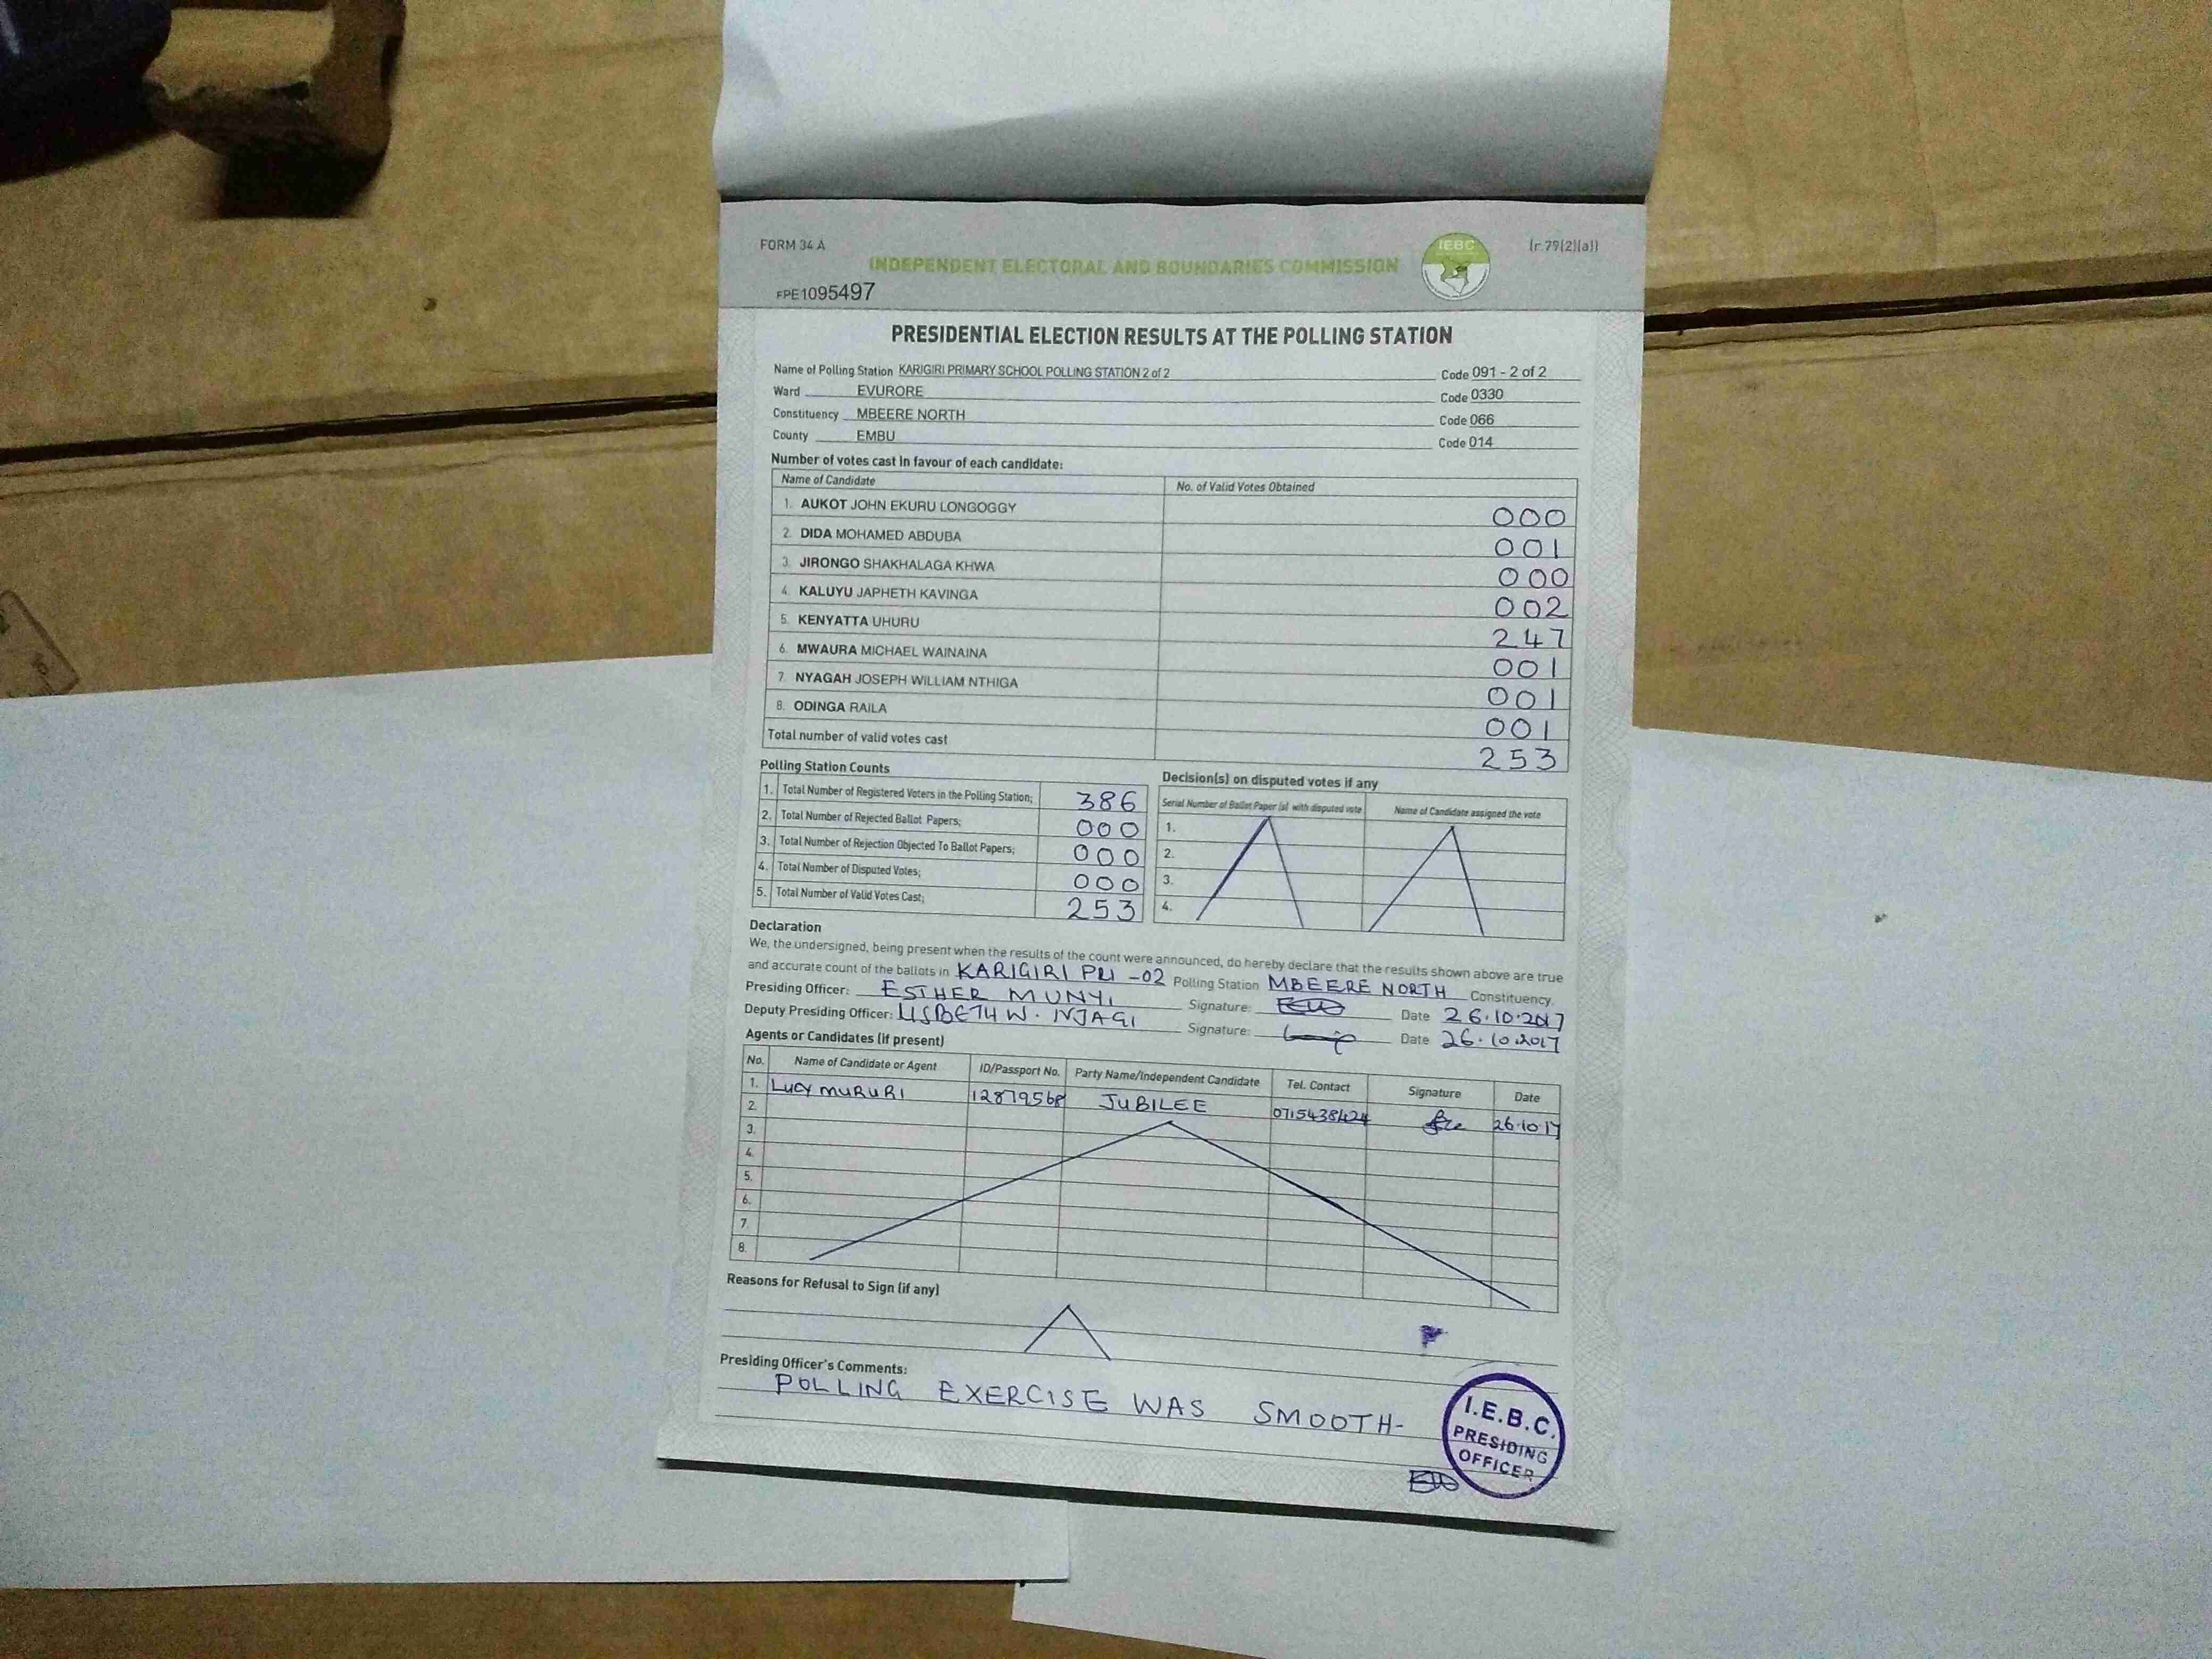 FORM 34 A
IEBC
(r.79(2)(a))
INDEPENDENT ELECTORAL AND BOUNDARIES COMMISSION
FPE1095497
PRESIDENTIAL ELECTION RESULTS AT THE POLLING STATION
Name of Polling Station KARIGIRI PRIMARY SCHOOL POLLING STATION 2 of 2 Code 091 - 2 of 2
Ward EVURORE Code 0330
Constituency MBEERE NORTH Code 066
County EMBU Code 014
Number of votes cast in favour of each candidate:
Name of Candidate No. of Valid Votes Obtained
1. AUKOT JOHN EKURU LONGOGGY 000
2. DIDA MOHAMED ABDUBA 001
3. JIRONGO SHAKHALAGA KHWA 000
4. KALUYU JAPHETH KAVINGA 002
5. KENYATTA UHURU 247
6. MWAURA MICHAEL WAINAINA 001
7. NYAGAH JOSEPH WILLIAM NTHIGA 001
8. ODINGA RAILA 001
Total number of valid votes cast 253
Polling Station Counts
1. Total Number of Registered Voters in the Polling Station; 386
2. Total Number of Rejected Ballot Papers; 000
3. Total Number of Rejection Objected To Ballot Papers; 000
4. Total Number of Disputed Votes; 000
5. Total Number of Valid Votes Cast; 253
Decision(s) on disputed votes if any
Serial Number of Ballot Paper (s) with disputed vote Name of Candidate assigned the vote
1.
2.
3.
4.
Declaration
We, the undersigned, being present when the results of the count were announced, do hereby declare that the results shown above are true
and accurate count of the ballots in KARIGIRI PRI -02 Polling Station MBEERE NORTH Constituency.
Presiding Officer: ESTHER MUNYI Signature: Date 26.10.2017
Deputy Presiding Officer: LISBETH W. NJAGI Signature: Date 26.10.2017
Agents or Candidates (if present)
No. Name of Candidate or Agent ID/Passport No. Party Name/Independent Candidate Tel. Contact Signature Date
1. LUCY MURURI 12879568 JUBILEE 0715438424 26.10.17
2.
3.
4.
5.
6.
7.
8.
Reasons for Refusal to Sign (if any)
Presiding Officer's Comments:
POLLING EXERCISE WAS SMOOTH-
I.E.B.C.
PRESIDING
OFFICER